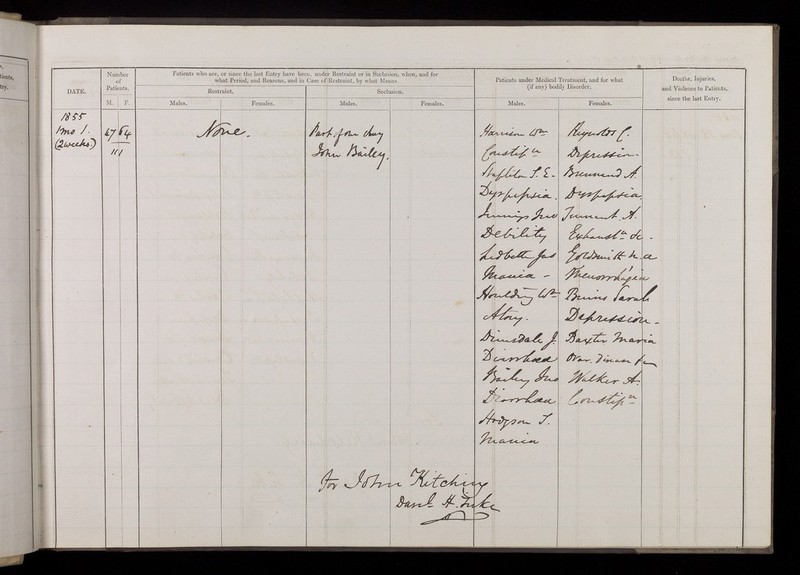 tients,
try.
DATE.
Number
of
Patients.
M. F.
Patients who are, or since the last Entry have been, under Restraint or in Seclusion, when, and for
what Period, and Reasons, and in Case of Restraint, by what Means.
Restraint.
Seclusion.
Males. Females. Males. Females.
Patients under Medical Treatment, and for what
(if any) bodily Disorder.
Males. Females.
Deaths, Injuries,
and Violence to Patients,
since the last Entry.
1855
1mo 1.
(2 weeks.)
47 64
111
None.
Part of one day
John Bailey.
Harrison Wm Reynolds C.
Constipn Depression.
S. E. - A.
Dyspepsia. Dyspepsia.
Jennings Jno A.
Debility Exhaustn &c.
Ledbetter Jas Goldsmith M. A
Mania - Menorrhagia
Houlding Wm Binns Sarah
Atony. Depression.
Dimsdale J. Baxter Maria
Diarrhoea Ovar. Disease
Bailey Jno Walker A.
Diarrhoea Constipn
Hodgson J.
Mania
for John Kitching
Danl. H. Tuke